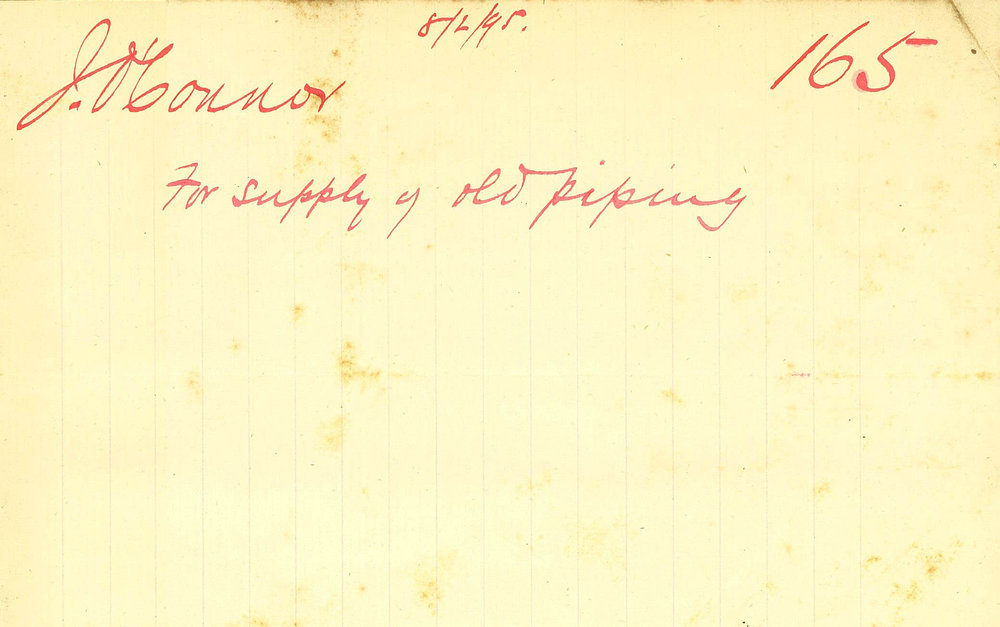 8/2/95.
J. O'Connor 165
For supply of old piping